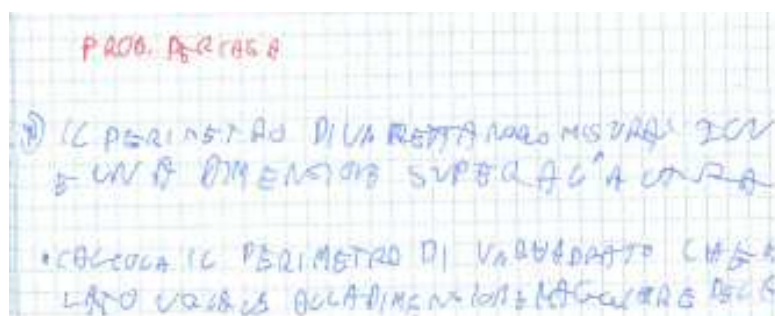 PROB. PER CASA
IL PERIMETRO DI UN RETTANGOLO MISURA
E UNA DIMENSIONE SUPERA L'ALTRA
• CALCOLA IL PERIMETRO DI UN QUADRATO CHE
LATO UGUALE ALLA DIMENSIONE MAGGIORE DEL